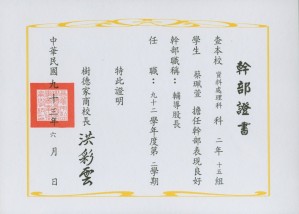 幹部證書
查本校 資料處理科 科 二 年 十五 組
學生 蔡珮萱 擔任幹部表現良好
幹部職稱： 輔導股長
任 職：九十二學年度第二學期
特此證明
樹德家商校長 洪彩雲
中華民國九十三年六月 日